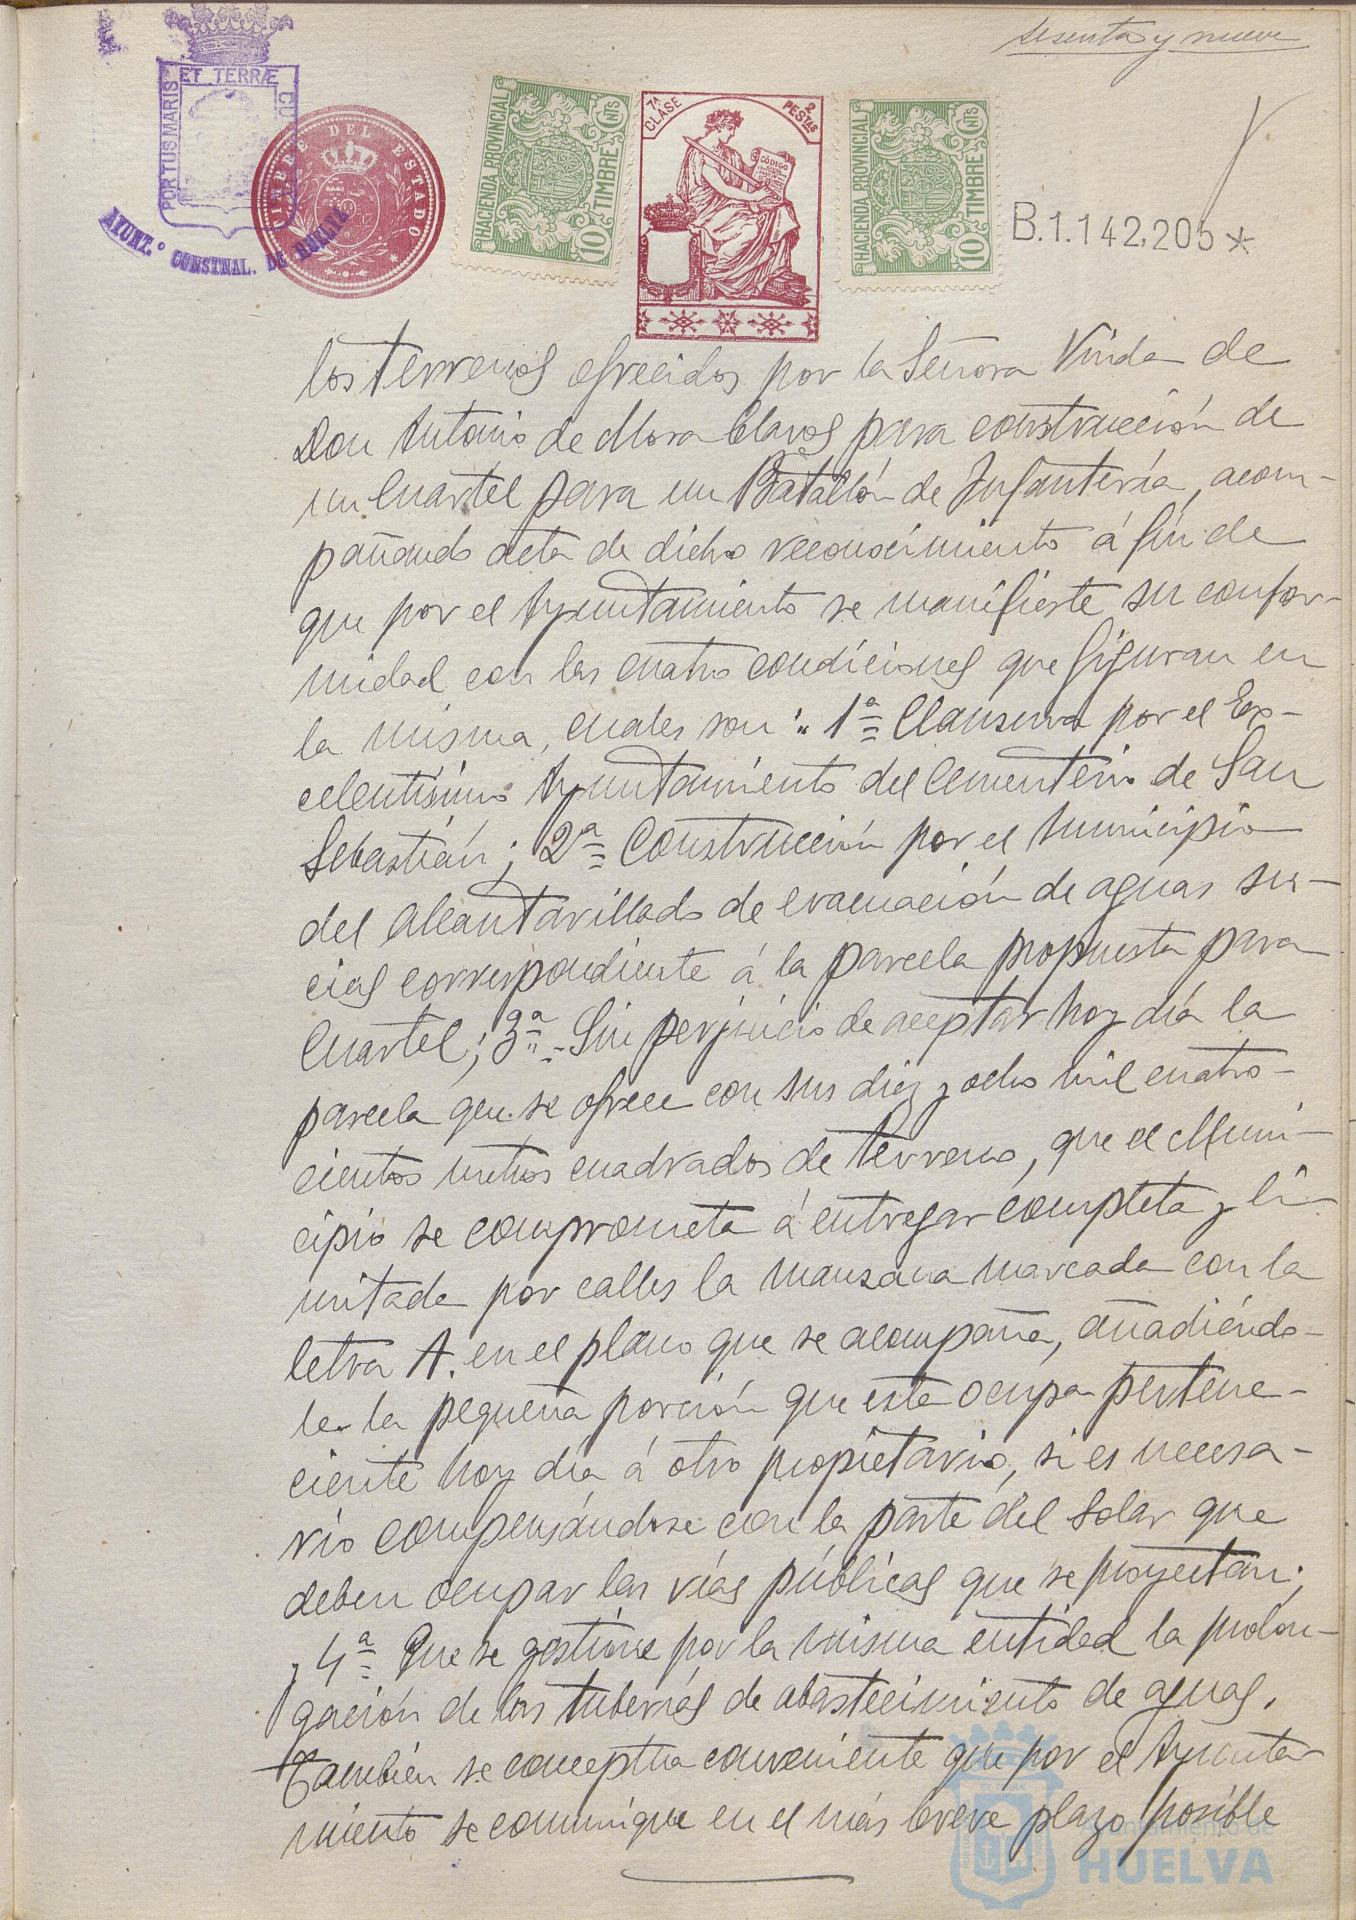 sesenta y nueve
PORTUS MARIS ET TERRÆ CU
AYUNT.º CONSTNAL. DE HUELVA
TIMBRE DEL ESTADO
HACIENDA PROVINCIAL
10 CNTS
TIMBRE
7ª CLASE
2 PESTAS
CÓDIGO
HACIENDA PROVINCIAL
10 CNTS
TIMBRE
B.1.142,205*
los terrenos ofrecidos por la Señora Viuda de
Don Antonio de Mora Claros para construcción de
un Cuartel para un Batallón de Infantería, acom-
pañando acta de dicho reconocimiento á fin de
que por el Ayuntamiento se manifieste su confor-
midad con las cuatro condiciones que figuran en
la misma, cuales son: "1ª Clausura por el Ex-
celentísimo Ayuntamiento del Cementerio de San
Sebastián; 2ª Construcción por el Municipio
del alcantarillado de evacuación de aguas su-
cias correspondiente á la parcela propuesta para
Cuartel; 3ª- Sin perjuicio de aceptar hoy día la
parcela que se ofrece con sus diez y ocho mil cuatro-
cientos metros cuadrados de terreno, que el Muni-
cipio se comprometa á entregar completa y li-
mitada por calles la manzana marcada con la
letra A. en el plano que se acompaña, añadiéndo-
le la pequeña porción que esta ocupa pertene-
ciente hoy día á otro propietario, si es necesa-
rio compensándose con la parte del solar que
deben ocupar las vías públicas que se proyectan;
y 4ª Que se gestione por la misma entidad la prolon-
gación de las tuberías de abastecimiento de aguas.
También se conceptua conveniente que por el Ayunta-
miento se comunique en el más breve plazo posible
Ayuntamiento de
HUELVA